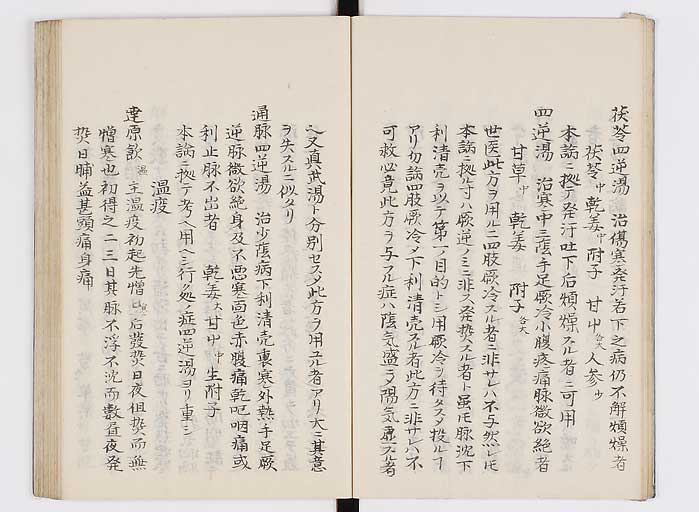 茯苓四逆湯 治傷寒発汗若下之病仍不解煩燥者
茯苓中 乾姜中 附子 甘中各大 人参少
本論ニ拠テ発汗吐下后煩燥スル者ニ可用
四逆湯 治寒中三陰手足厥冷小腹疼痛脉微欲絶者
甘草中 乾姜 附子各大
世医此方ヲ用ルニ四肢厥冷スル者ニ非サレハ不与然レ𪜈
本論ニ拠ル寸ハ厥逆ノミニ非ス発熱スル者ト雖𪜈脉沈下
利清壳ヲ以テ第一ノ目的トシ用厥冷ヲ待タスタ投ルヿ
アリ勿論四肢厥冷メ下利清壳スル者此方ニ非サレハ不
可救必竟此方ヲ与フル症ハ陰気盛ヲメ陽気虚スル者
ヘ又真武湯ト分別セスメ此方ヲ用ユル者アリ大ニ其意
ヲ失スルニ似タリ
通脉四逆湯 治少陰病下利清壳裏寒外熱手足厥
逆脉微欲絶身反不悪寒面色赤腹痛乾呕咽痛或
利止脉不出者 乾姜大 甘中中 生附子
本論ニ拠テ考ヘ用ヘシ行処ノ症四逆湯ヨリ重シ
温疫
達原飲 主温疫初起先憎后發熱日夜但熱而無
憎寒也初得之二三日其脉不浮不沈而數昼夜発
熱日晡益甚頭痛身痛